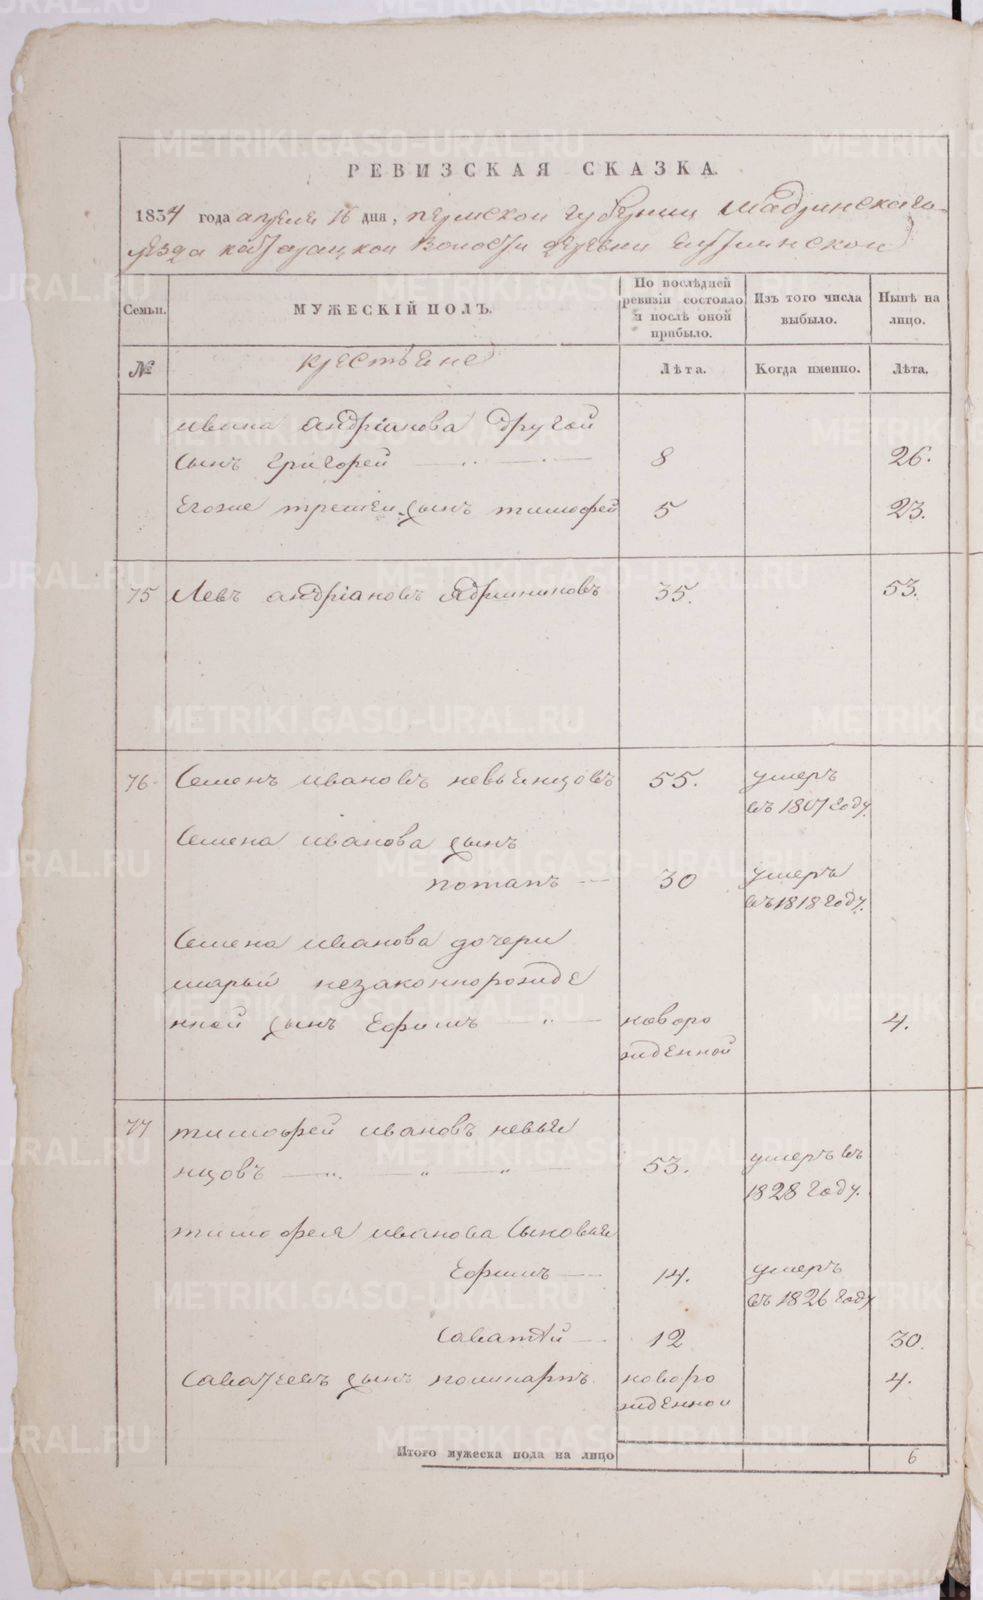 РЕВИЗСКАЯ СКАЗКА.
1834 года апреля 16 дня, пермской губернии Шадринскаго
уезда волости деревни
Семьи.
МУЖЕСКІЙ ПОЛЪ.
По послѣдней ревизіи состояло и послѣ оной прибыло.
Изъ того числа выбыло.
Нынѣ на лицо.
№
крестьяне
Лѣта.
Когда именно.
Лѣта.
ивана андріанова другой
сынъ григорей 8 26.
Егоже третей сынъ тимофей 5 23.
75 Левъ андріановъ 35. 53.
76 Семенъ ивановъ невьянцовъ 55. умеръ
въ 1807 году.
Семена иванова сынъ
потапъ 30 умеръ
въ 1818 году.
Семена иванова дочери
марьи незаконнорожде
нной сынъ Ефимъ новоро 4.
жденной
77 тимофей ивановъ невья
нцовъ 53. умеръ въ
1828 году.
тимофея иванова сыновья
Ефимъ 14. умеръ
въ 1826 году
саватей 12 30.
саватеевъ сынъ новоро 4.
жденной
Итого мужеска пола на лицо 6
METRIKI.GASO-URAL.RU